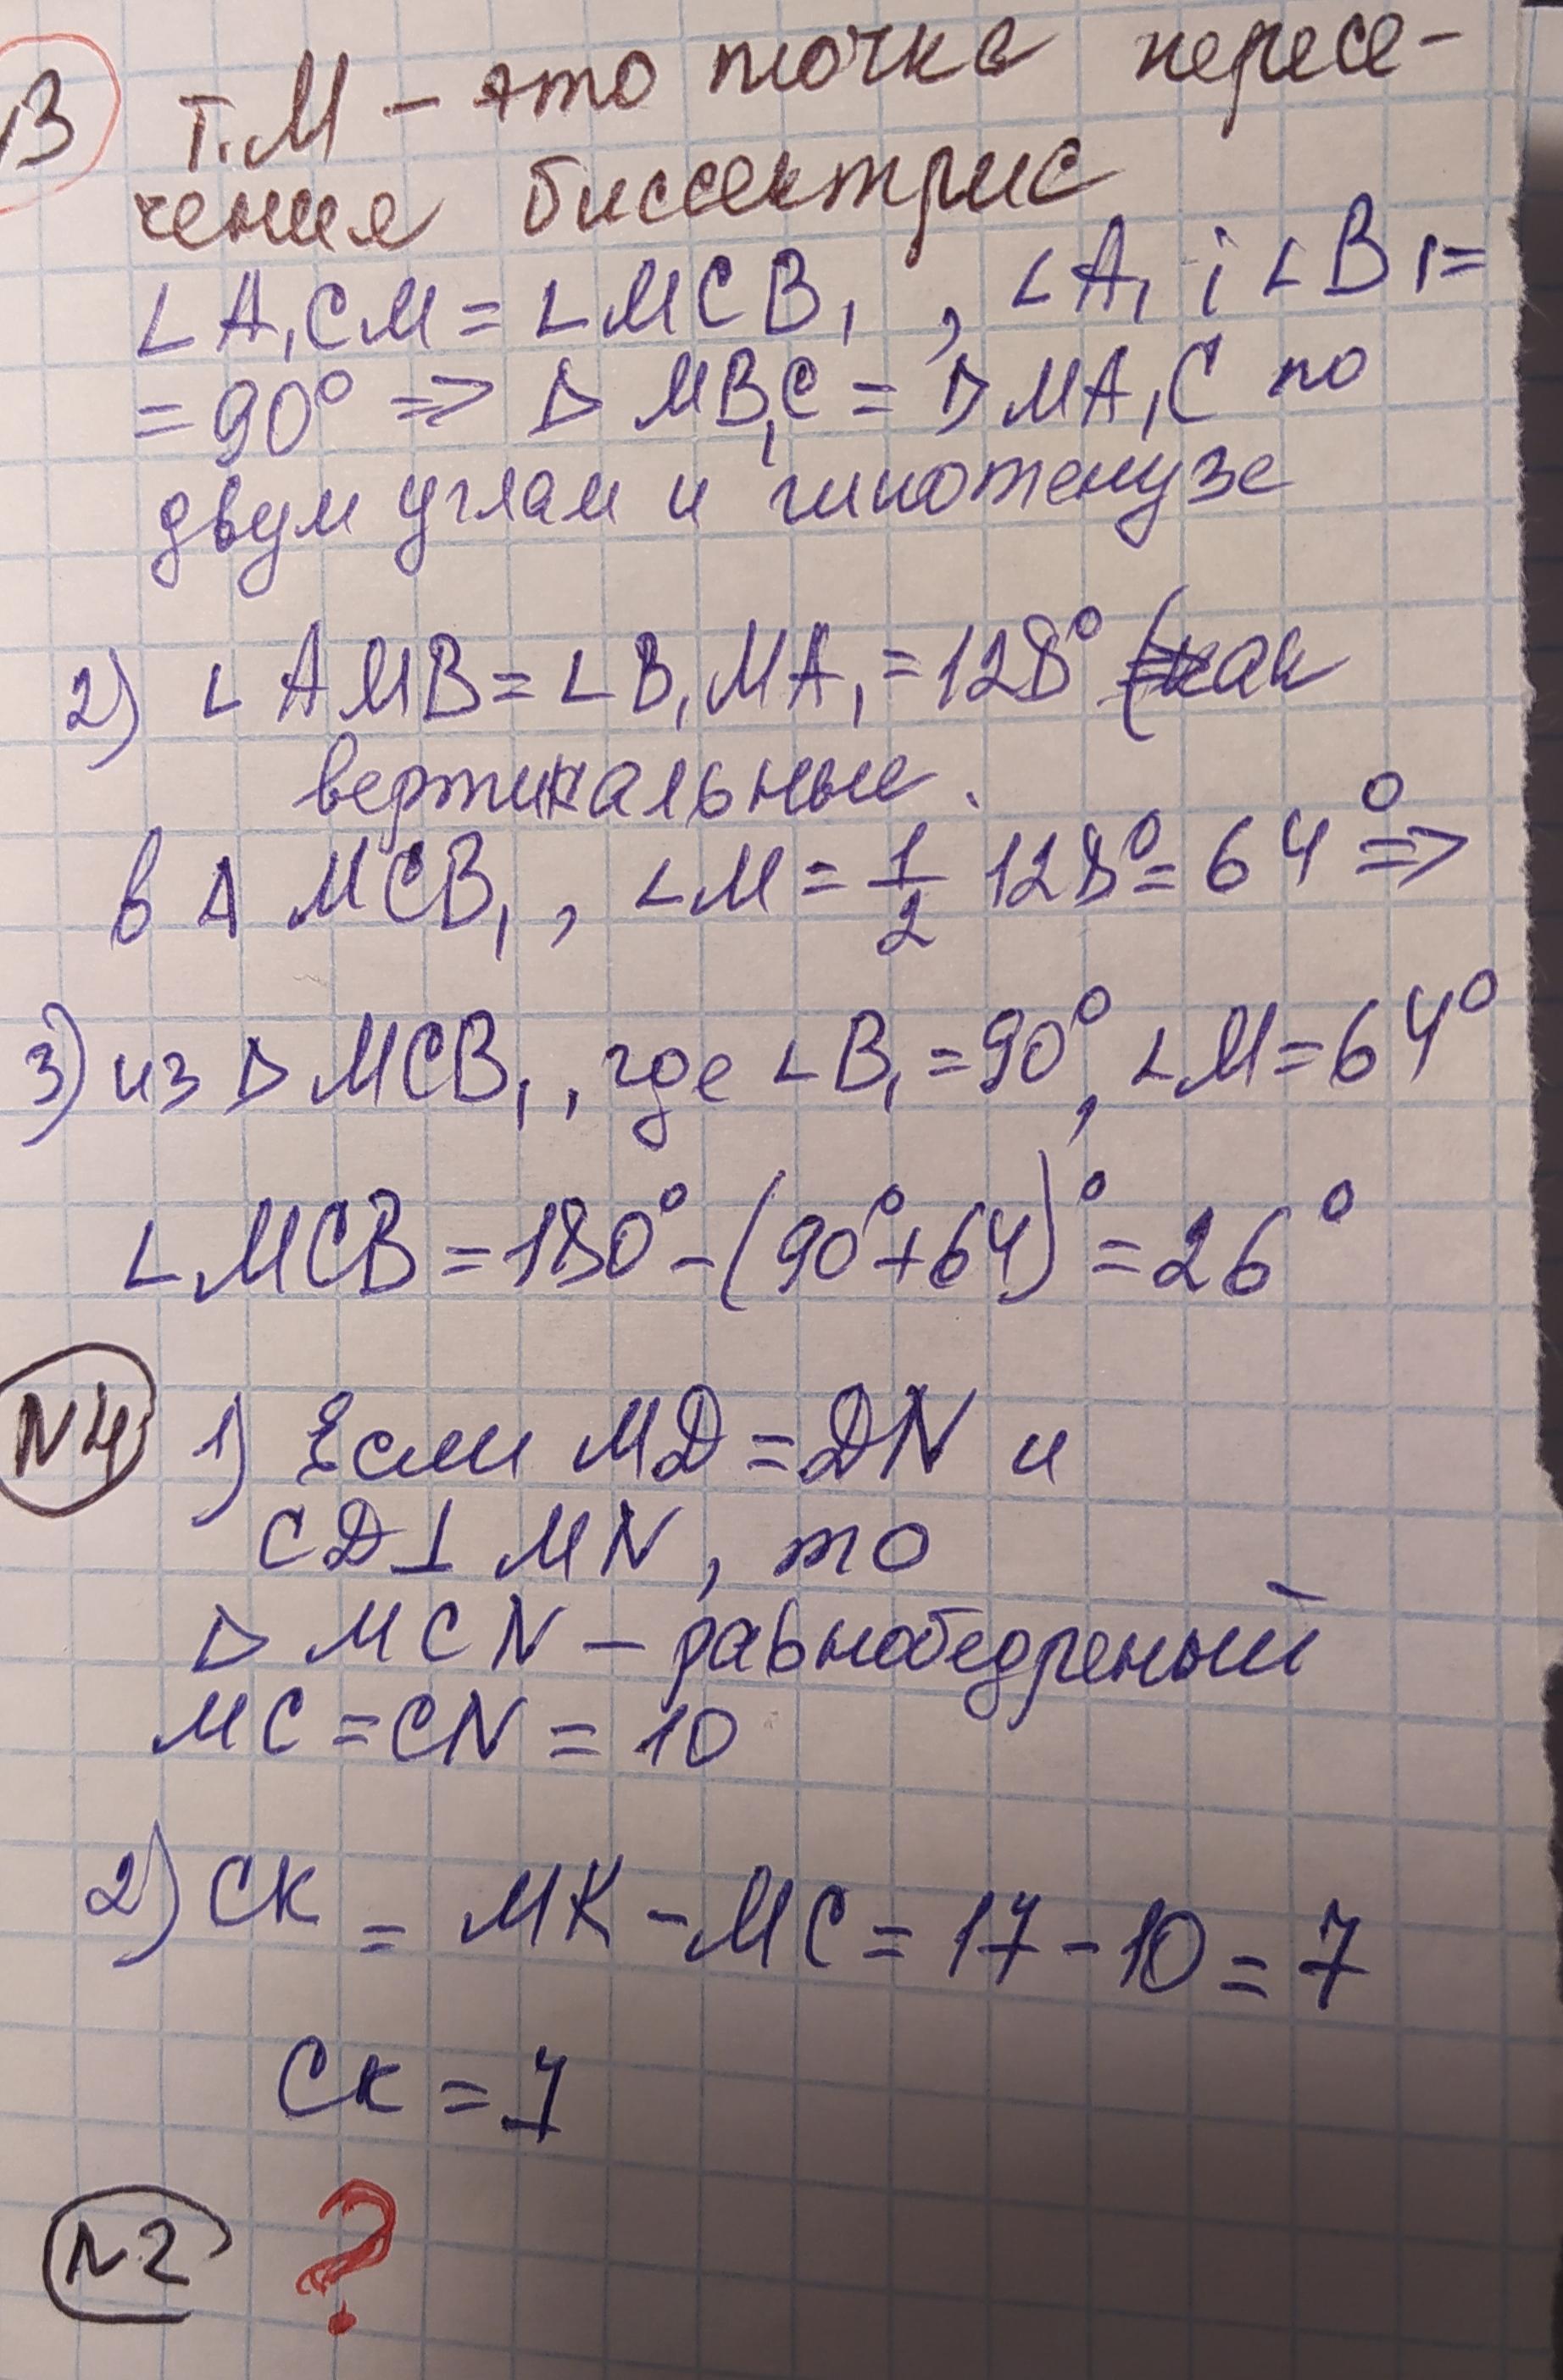 В Т.М - это точка пересе-
чения биссектрис
∠A₁CM = ∠MCB₁ , ∠A₁ і ∠B₁=
= 90° => △ MB₁C = △ MA₁C по
двум углам и гипотенузе
2) ∠AMB = ∠B₁MA₁ = 128° (как
вертикальные.
в △ MCB₁ , ∠M = 1/2 128° = 64° =>
3) из △ MCB₁ , где ∠B₁ = 90°, ∠M = 64°
∠MCB = 180° - (90° + 64)° = 26°
N4 1) Если MD = DN и
CD ⊥ MN , то
△ MCN - равнобедреный
MC = CN = 10
2) CK = MK - MC = 17 - 10 = 7
CK = 7
N2 ?